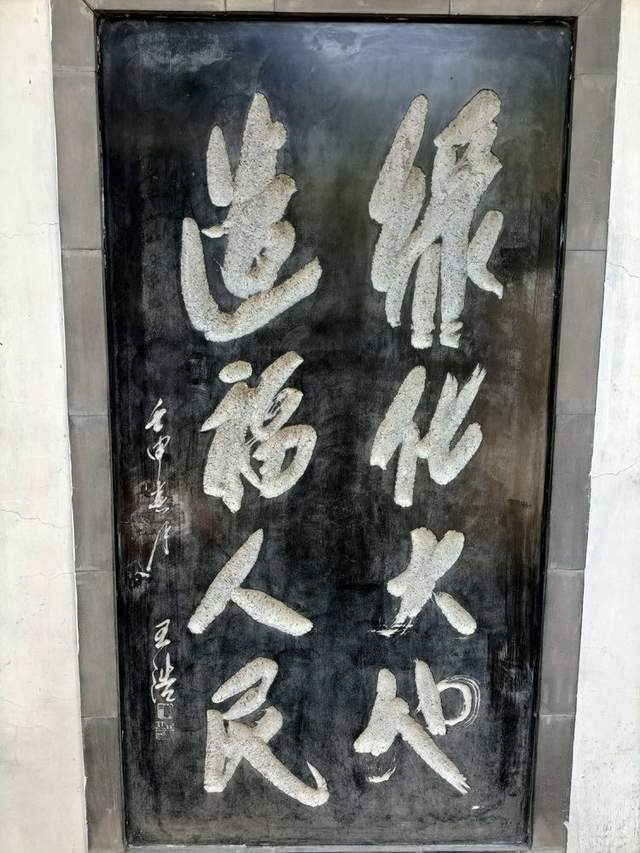 绿化大地
造福人民
壬申月
王浩